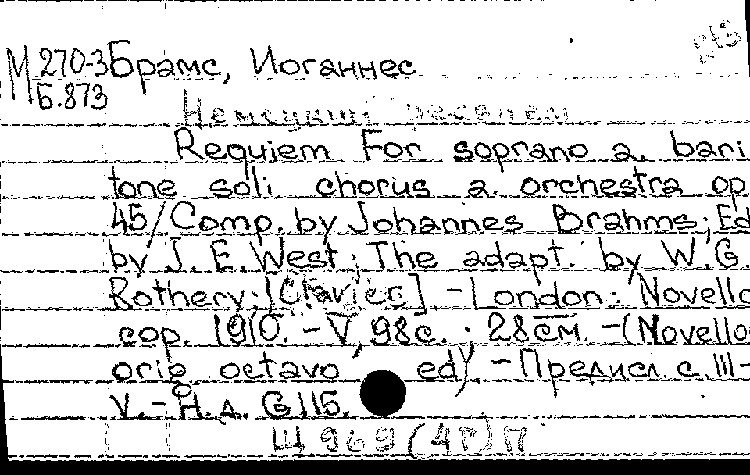 М 270-3 Брамс, Иоганнес
Б.873
Немецкий реквием
Requiem For soprano a. bari
tone soli chorus a. orchestra op
45/Comp. by Johannes Brahms; Ed
by J. E. West; The adapt. by W. G.
Rothery; [Clavier] - London: Novello
cop. 1910. - V, 98с. ; 28см. - (Novello
orig octavo ed) - Предисл. с. III-
V. - Н. д. G 115.
Щ 969(4Г)П